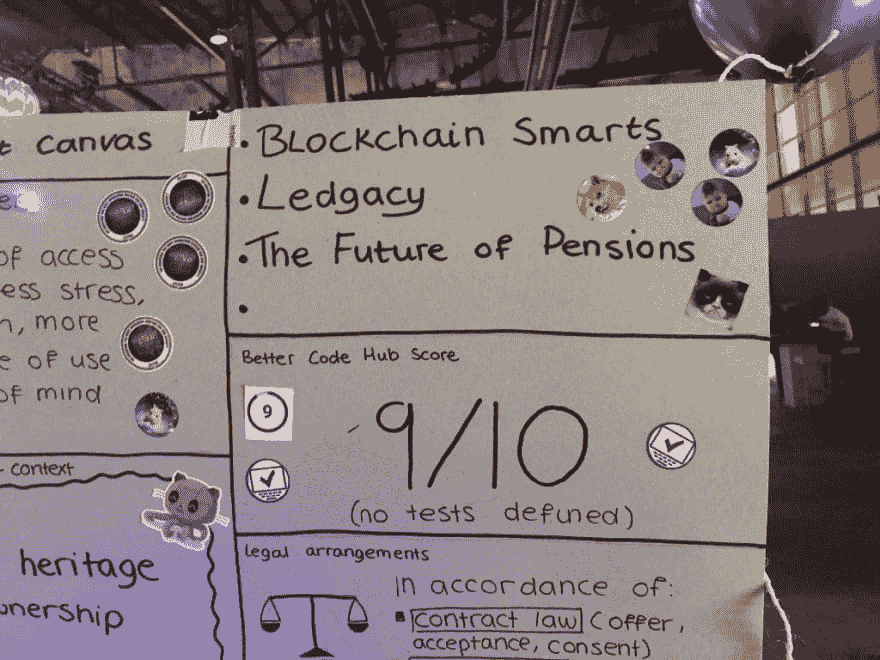 canvas
of access
ess stress,
more
of use
of mind
context
heritage
nership
• BLOCKchain Smarts
• Ledgacy
• The Future of Pensions
•
Better Code Hub Score
9
9/10
(no tests defined)
legal arrangements
In accordance of:
▪ contract law (offer,
acceptance, consent)